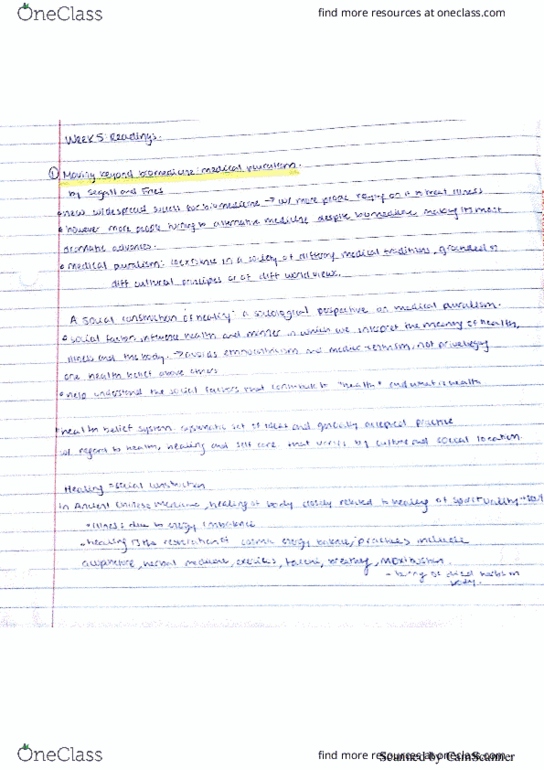 OneClass
find more resources at oneclass.com
Week 5: Readings.
① Moving beyond biomedicine: medical pluralism.
by Segall and Fries
new widespread success for biomedicine → w/ more people relying on it to treat illness
• however more people turning to alternative medicine despite biomedicine making its most
dramatic advances.
• medical pluralism: coexistence in a society of differing medical traditions, grounded in
diff cultural principles or of diff world views.
A social construction of healing: a sociological perspective on medical pluralism.
• social factors influence health and manner in which we interpret the meaning of health,
illness and the body. → avoids ethnocentrism and medical not privileging
one health belief above others
• help understand the social factors that contribute to "health" and what is health
• health belief system: systematic set of ideas and generally accepted practice
w/ regard to health, healing and self care that varies by culture and social location
Healing = social construction
In Ancient Chinese Medicine, healing of body closely related to healing of spirituality
• illness due to energy imbalance
• healing is the restoration of cosmic energy balance; practices include
acupuncture, herbal medicine, exercises, breathing, moxibustion.
- of dried herbs on
body.
OneClass
find more resources at oneclass.com
Scanned by CamScanner